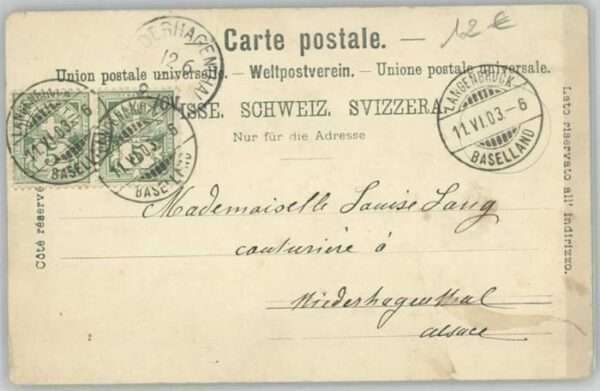 12 €
Carte postale.
Union postale universelle. – Weltpostverein. – Unione postale universale.
SUISSE. SCHWEIZ. SVIZZERA.
Nur für die Adresse
Côté réservé
Lato riservato all' indirizzo.
LANGENBRUCK
11.VI.03.–6
BASELLAND
LANGENBRUCK
11.VI.03.–6
BASELLAND
LANGENBRUCK
11.VI.03.–6
BASELLAND
12.6
Mademoiselle Louise Lang
couturière à
Niederhagenthal
alsace